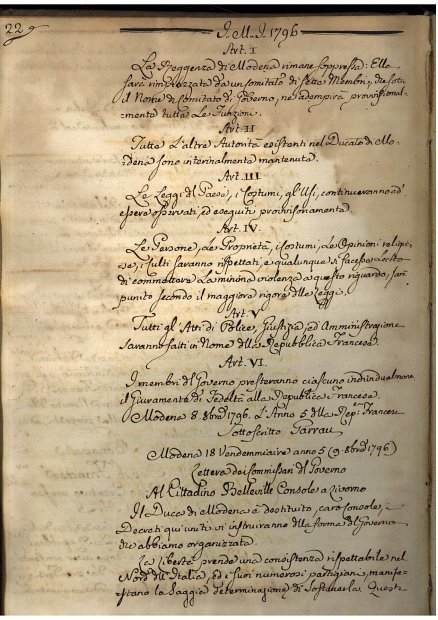 229
I. M. I. 1796
Art. I
La Reggenza di Modena rimane soppressa: Ella
sarà rimpiazzata da un Comitato di Sette Membri, che sotto
il Nome di Comitato di Governo, ne adempirà provvisional-
mente tutte Le Funzioni.
Art. II
Tutte L'altre Autorità esistenti nel Ducato di Mo-
dena sono interinalmente mantenute.
Art. III
Le Leggi del Paese, i Costumi, gl'Usi, continueranno ad
essere osservati, ed eseguiti provvisionamente.
Art. IV.
Le Persone, Le Proprietà, i costumi, Le Opinioni religio-
se, i Culti saranno rispettati, e qualunque si facesse Lecito
di commettere La minima violenza a questo riguardo, sarà
punito secondo il maggiore rigore delle Leggi.
Art. V
Tutti gl'Atti di Police, Giustizia, ed Amministrazione
saranno fatti in Nome della Repubblica Francese.
Art. VI.
I membri del Governo presteranno ciascuno individualmente
il Giuramento di Fedeltà alla Republica Francese.
Modena 8. 8bre 1796. L'Anno 5 della Rep: Francese
Sottoscritto Garrau
Modena 18 Vendemmiaire anno 5 (9. 8bre 1796)
Lettera dei Commissari del Governo
Al Cittadino Belleville Console a Livorno
Il Duca di Modena è destituito, caro Console, i
Decreti qui uniti vi instruiranno della forma del Governo
che abbiamo organizzata.
La libertà prende una consistenza rispettabile nel
Nord dell'Italia, ed i suoi numerosi partigiani, manife-
stano la saggia determinazione di sostenerla. Questi